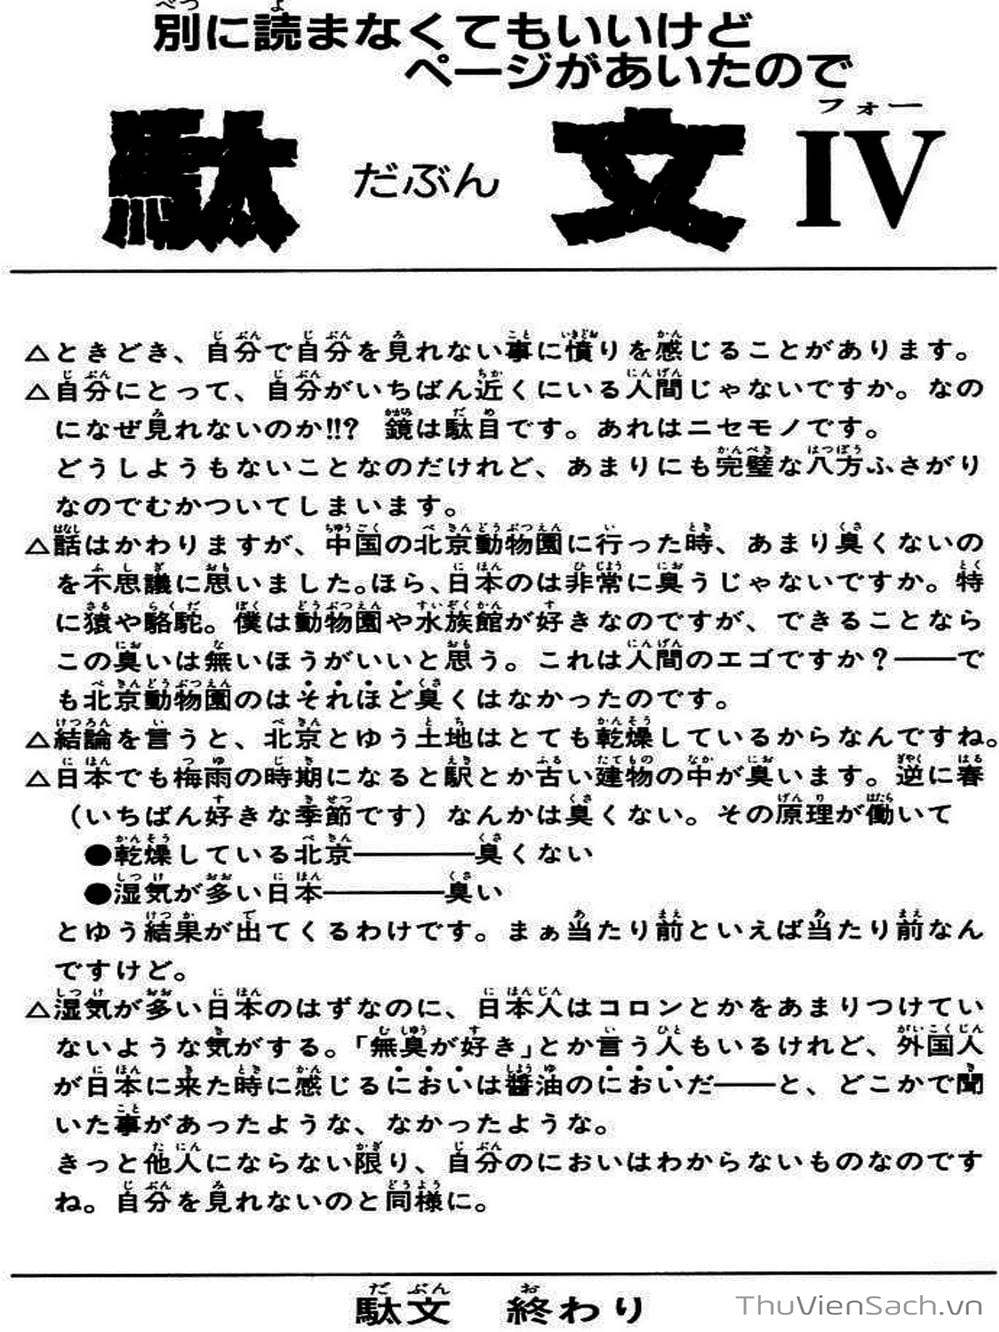 別に読まなくてもいいけど
ページがあいたので
駄文IV
だぶん
フォー
△ときどき、自分で自分を見れない事に憤りを感じることがあります。
△自分にとって、自分がいちばん近くにいる人間じゃないですか。なの
になぜ見れないのか!!? 鏡は駄目です。あれはニセモノです。
どうしようもないことなのだけれど、あまりにも完璧な八方ふさがり
なのでむかついてしまいます。
△話はかわりますが、中国の北京動物園に行った時、あまり臭くないの
を不思議に思いました。ほら、日本のは非常に臭うじゃないですか。特
に猿や駱駝。僕は動物園や水族館が好きなのですが、できることなら
この臭いは無いほうがいいと思う。これは人間のエゴですか?――で
も北京動物園のはそれほど臭くはなかったのです。
△結論を言うと、北京とゆう土地はとても乾燥しているからなんですね。
△日本でも梅雨の時期になると駅とか古い建物の中が臭います。逆に春
(いちばん好きな季節です)なんかは臭くない。その原理が働いて
●乾燥している北京――――臭くない
●湿気が多い日本――――臭い
とゆう結果が出てくるわけです。まぁ当たり前といえば当たり前なん
ですけど。
△湿気が多い日本のはずなのに、日本人はコロンとかをあまりつけてい
ないような気がする。「無臭が好き」とか言う人もいるけれど、外国人
が日本に来た時に感じるにおいは醤油のにおいだ――と、どこかで聞
いた事があったような、なかったような。
きっと他人にならない限り、自分のにおいはわからないものなのです
ね。自分を見れないのと同様に。
駄文 終わり
ThuVienSach.vn